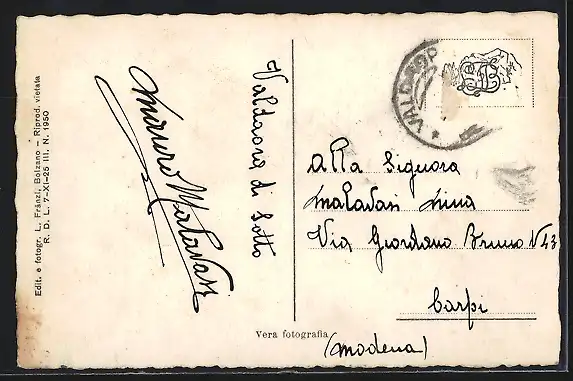 Edit. e fotogr. L. Fränzl, Bolzano – Riprod. vietata
R. D. L. 7-XI-25 III. N. 1950
Mauro Malavasi
Valdaora di Sotto
VALDAO
Alla Signora
Malavasi Nina
Via Giordano Bruno N 43
Carpi
(Modena)
Vera fotografia